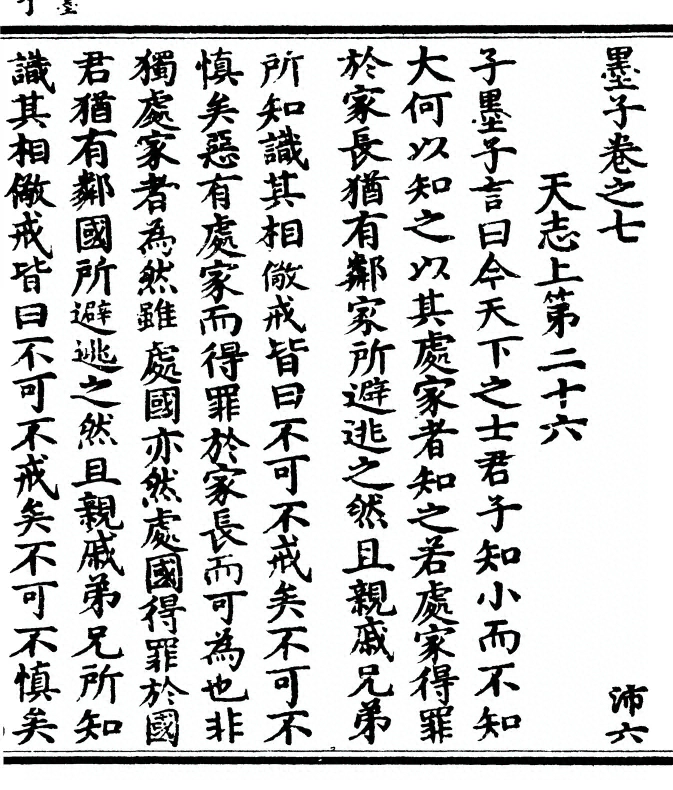 墨子卷之七
沛六
天志上第二十六
子墨子言曰今天下之士君子知小而不知
大何以知之以其處家者知之若處家得罪
於家長猶有鄰家所避逃之然且親戚兄弟
所知識其相儆戒皆曰不可不戒矣不可不
慎矣惡有處家而得罪於家長而可為也非
獨處家者為然雖處國亦然處國得罪於國
君猶有鄰國所避逃之然且親戚弟兄所知
識其相儆戒皆曰不可不戒矣不可不慎矣